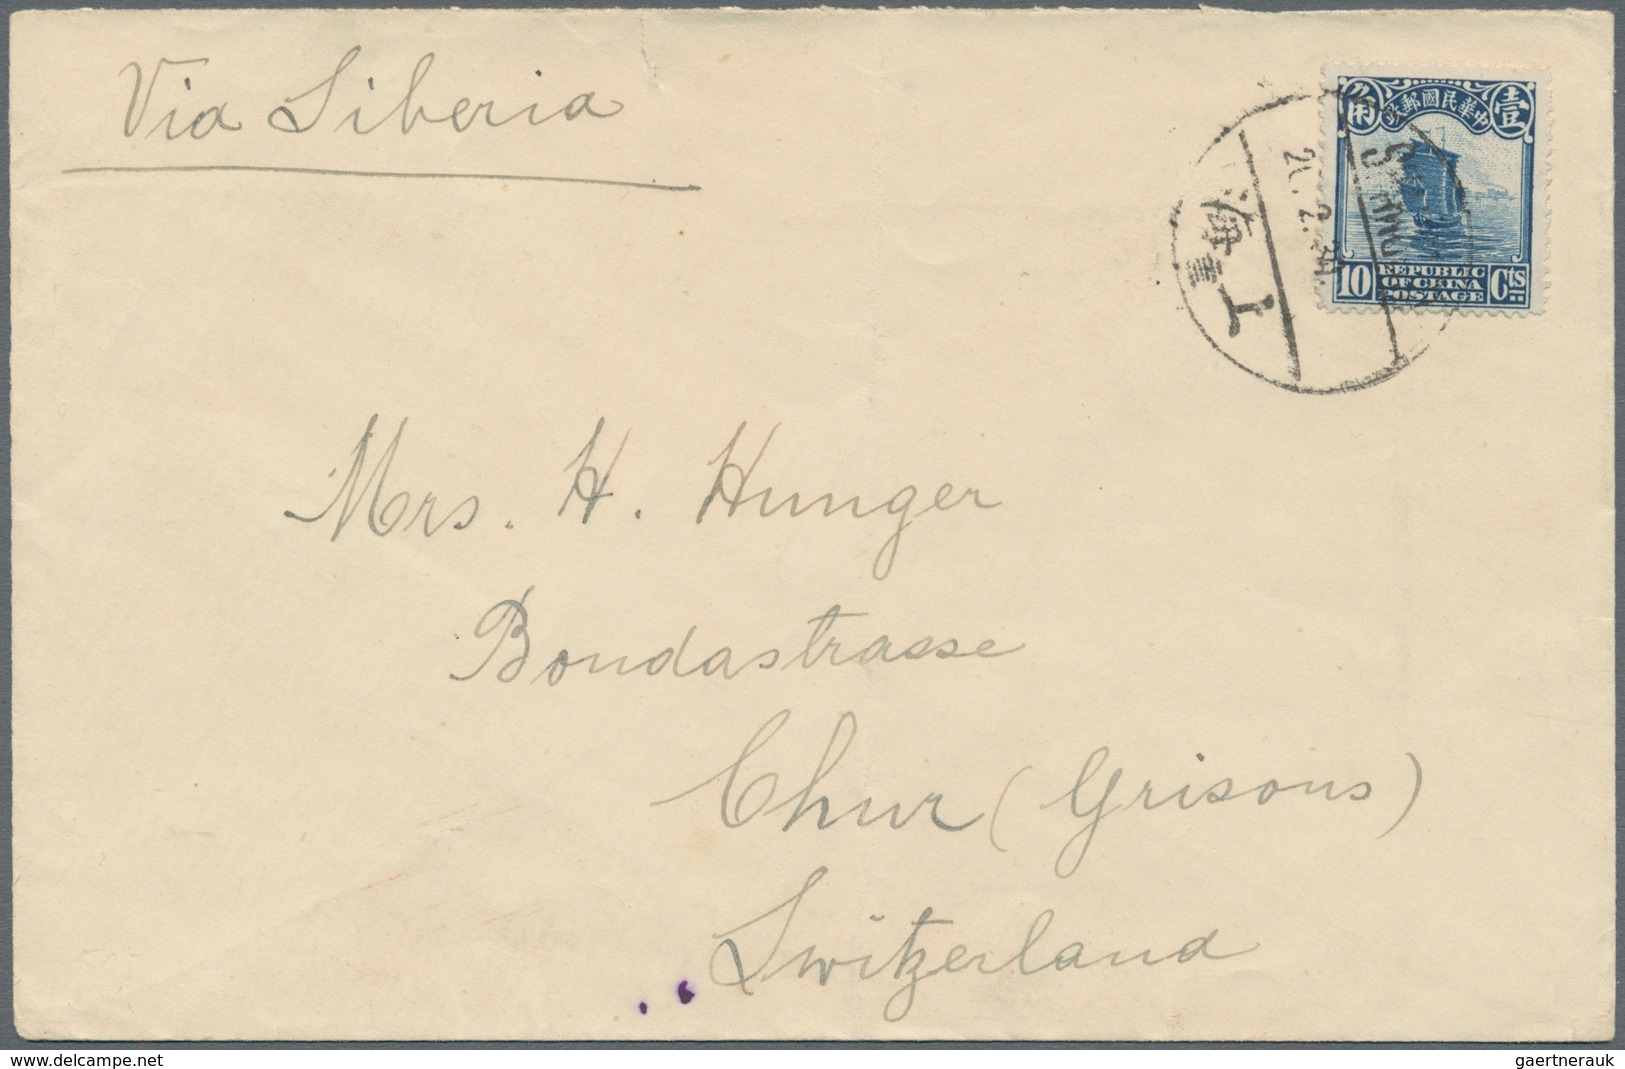 Via Siberia
角 中華民國郵政 壹
10 REPUBLIC OF CHINA POSTAGE Cts
SHANGHAI
上海
Mrs. H. Hunger
Bondastrasse
Chur (Grisons)
Switzerland
www.delcampe.net
gaertnerauk